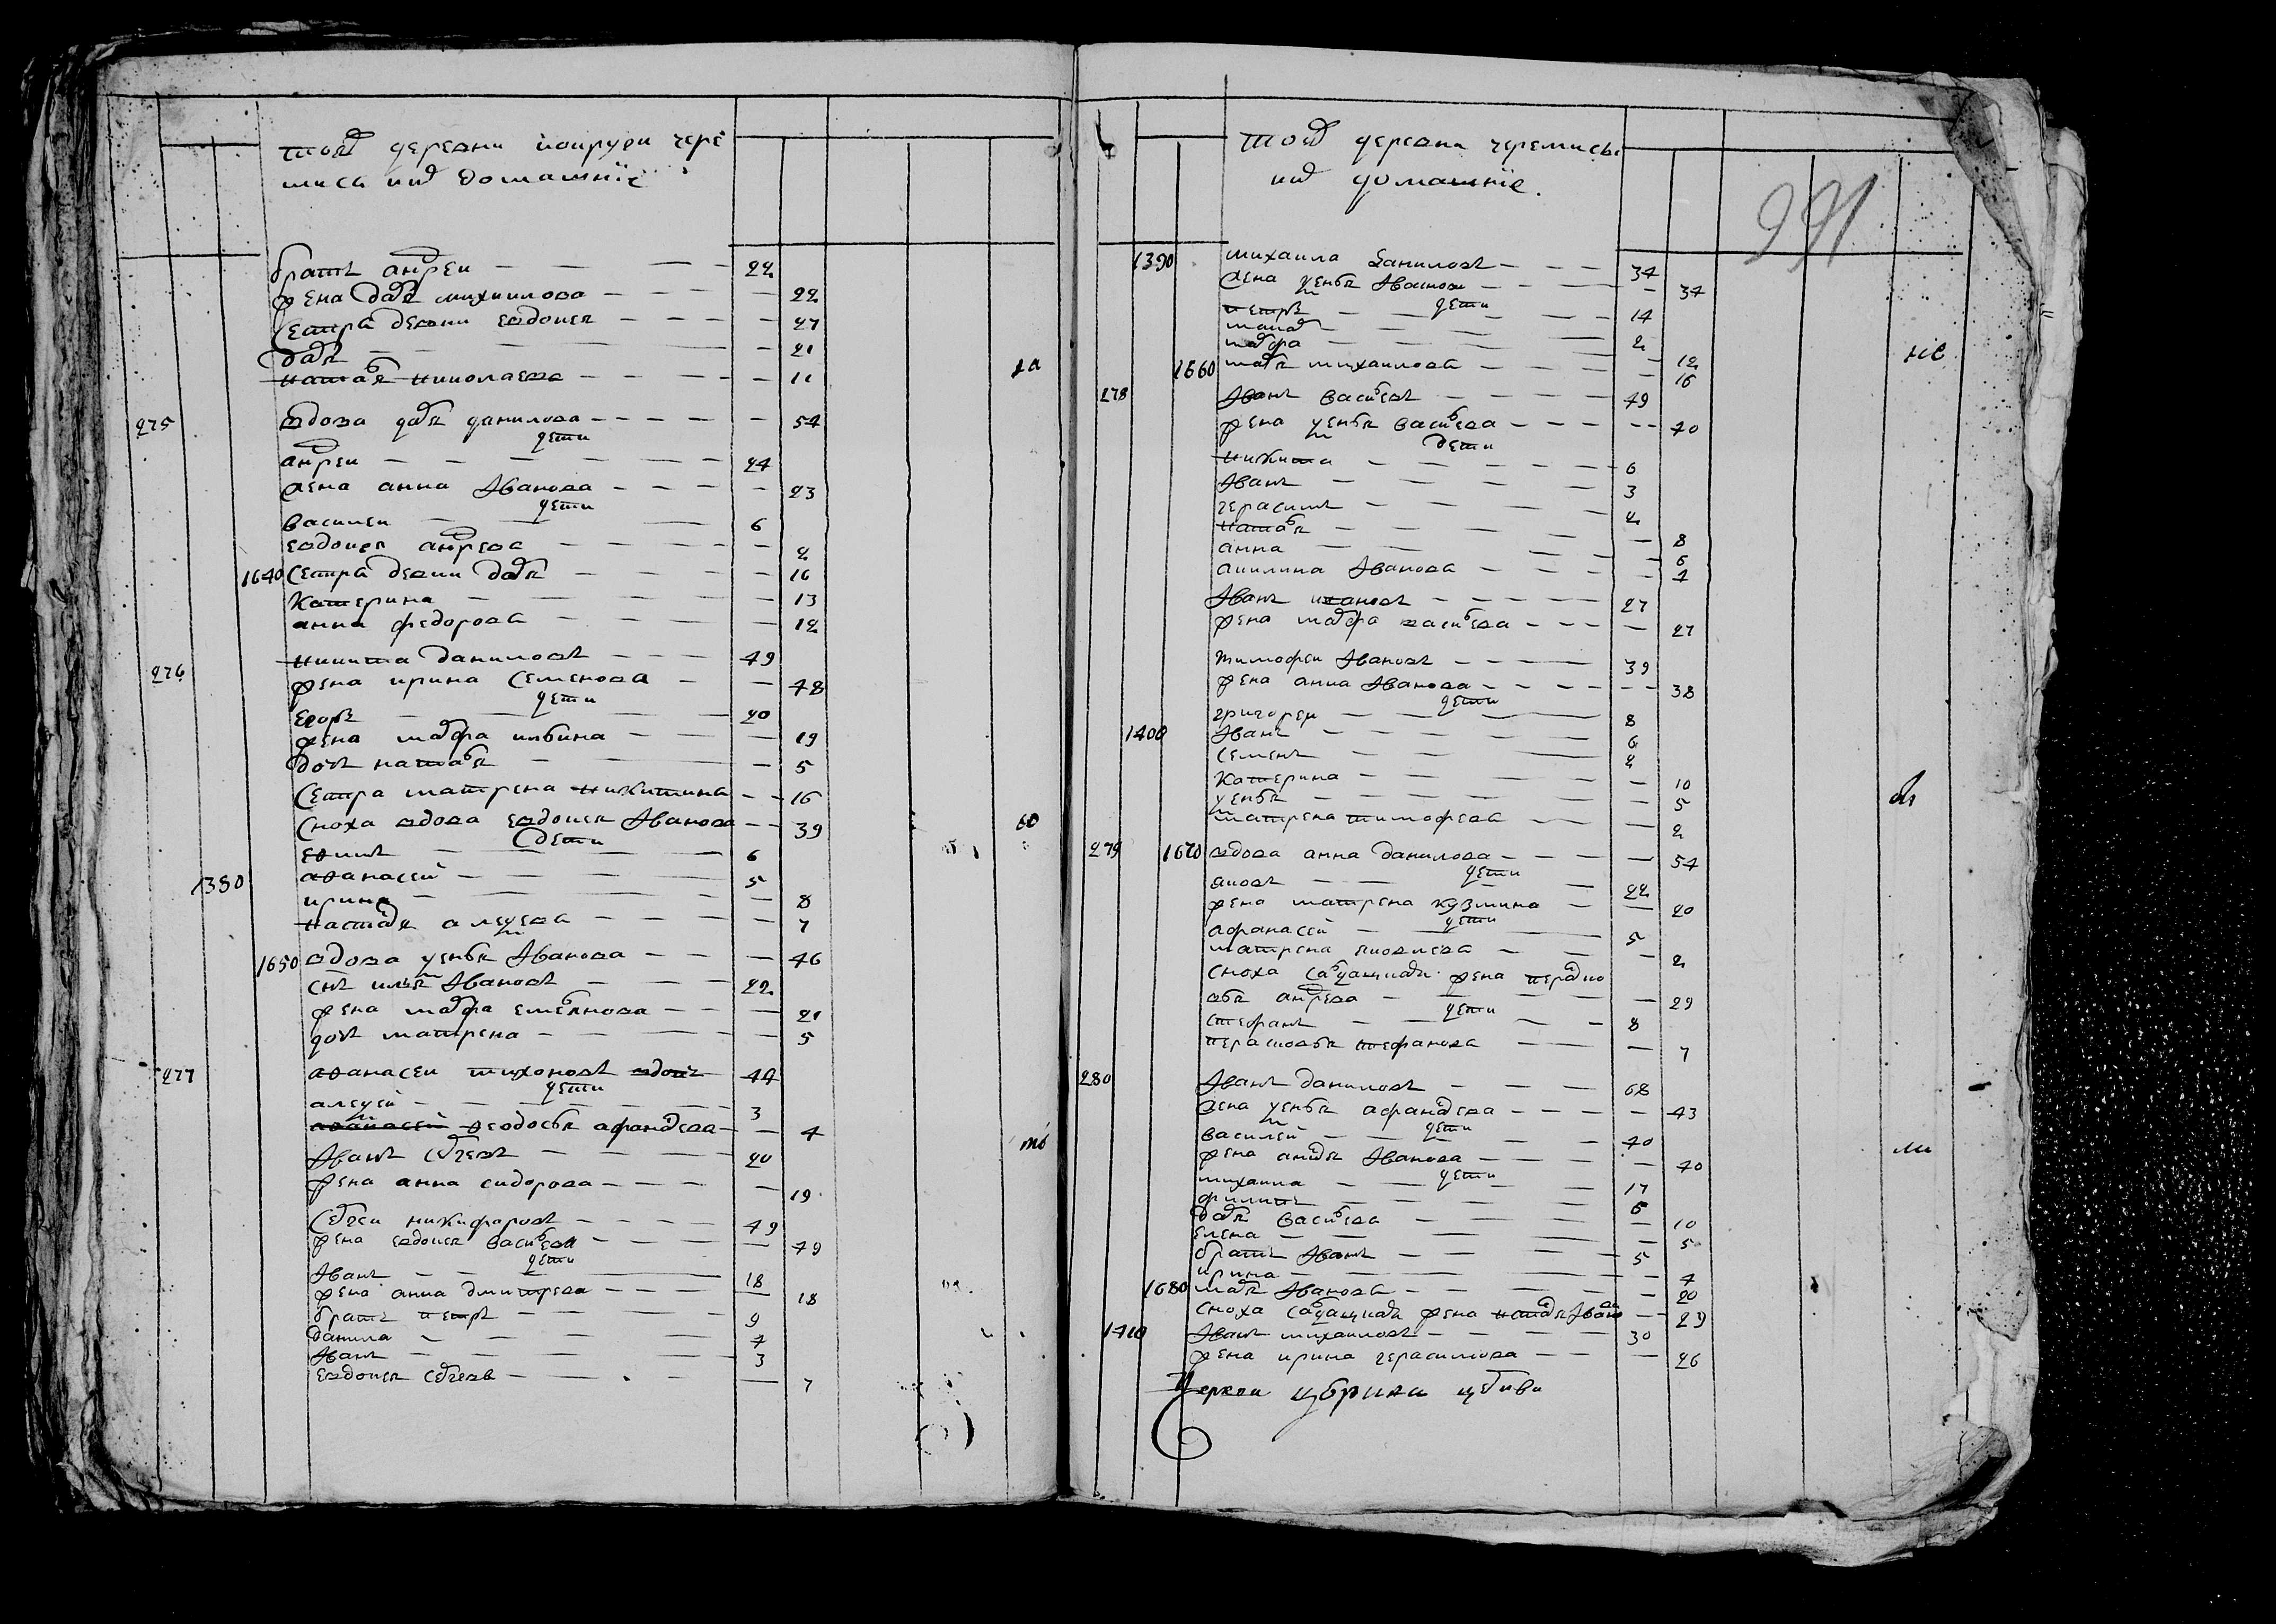 тоей деревни чере
миса иих домашние
братъ андреи 22
жена дарья михаилова 22
сестра девки евдокея 27
дарья 21
наталья николаева 11
275 вдова дарья данилова 54
дети
андреи 24
жена анна Иванова 23
дети
василеи 6
евдокея андреева 2
1640 сестра девки дарья 16
катерина 13
анна федорова 12
276 никита даниловъ 49
жена ирина семенова 48
дети
егоръ 20
жена марфа ильина 19
дочь наталья 5
сестра матрена никитина 16
сноха вдова евдокея Иванова 39
дети
ефимъ 6
1380 афанасеи 5
ирина 8
настасья алексеева 7
1650 вдова устинья Иванова 46
снъ илья Ивановъ 22
жена марфа емельянова 21
дочь матрена 5
277 афанасеи тихоновъ вдовъ 44
дети
алексеи 3
феодосья афанасьева 4
Иванъ сергеевъ 20
жена анна сидорова 19
сергеи никифоровъ 49
жена евдокея васильева 49
дети
Иванъ 18
жена анна дмитреева 18
братъ петръ 9
данила 4
Иванъ 3
евдокея сергеева 7
тоей деревни черемисы
иих домашние.
991
1390 михаила даниловъ 34
жена устинья Иванова 34
дети
петръ 14
марфа 12
1660 марья михаилова 16
278 Иванъ васильевъ 49
жена устинья васильева 40
дети
никита 6
Иванъ 3
герасимъ 2
наталья 8
анна 6
акилина Иванова 4
Иванъ Ивановъ 27
жена марфа васильева 27
тимофеи Ивановъ 39
жена анна Иванова 38
дети
григореи 8
1400 Иванъ 6
семенъ 2
катерина 10
устинья 5
матрена тимофеева 2
279 1670 вдова анна данилова 54
дети
яковъ 22
жена матрена кузмина 20
дети
афанасеи 5
матрена яковлева 2
сноха салдацкая жена параско
вья андреева 29
дети
степанъ 8
парасковья степанова 7
280 Иванъ даниловъ 68
жена устинья афанасьева 43
дети
василеи 40
жена настасья Иванова 40
дети
михаила 17
филипъ 6
дарья васильева 10
елена 5
братъ Иванъ 5
ирина 4
1680 марья Иванова 20
сноха салдацкая жена настасья Иванова 29
1410 Иванъ михаиловъ 30
жена ирина герасимова 26